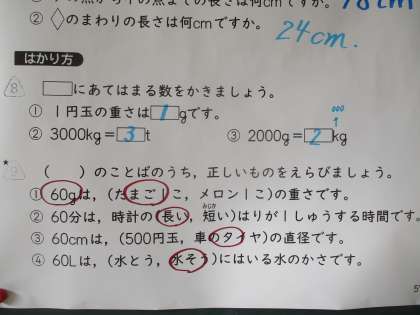 ② ◇のまわりの長さは何cmですか。
24cm.
はかり方
8 □にあてはまる数をかきましょう。
① 1円玉の重さは1gです。
② 3000kg=3t ③ 2000g=2kg
9 ( )のことばのうち，正しいものをえらびましょう。
① 60gは，(たまご1こ，メロン1こ)の重さです。
② 60分は，時計の(長い，短い)はりが1しゅうする時間です。
みじか
③ 60cmは，(500円玉，車のタイヤ)の直径です。
④ 60Lは，(水とう，水そう)にはいる水のかさです。